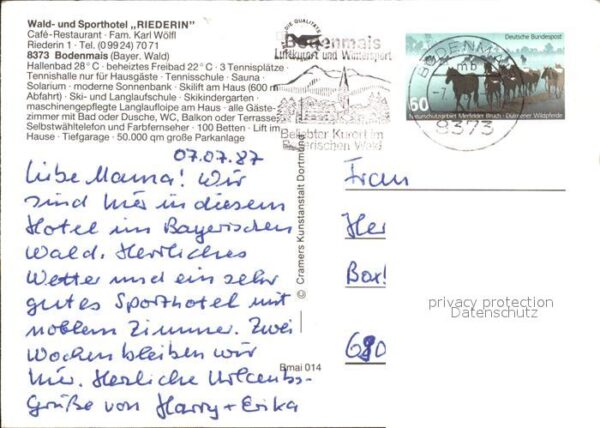 Wald- und Sporthotel „RIEDERIN"
Café-Restaurant · Fam. Karl Wölfl
Riederin 1 · Tel. (0 99 24) 70 71
8373 Bodenmais (Bayer. Wald)
Hallenbad 28° · beheiztes Freibad 22° C · 3 Tennisplätze
Tennishalle nur für Hausgäste · Tennisschule · Sauna ·
Solarium · moderne Sonnenbank · Skilift am Haus (600 m
Abfahrt) · Ski- und Langlaufschule · Skikindergarten ·
maschinengepflegte Langlaufloipe am Haus · alle Gäste-
zimmer mit Bad oder Dusche, WC, Balkon oder Terrasse,
Selbstwähltelefon und Farbfernseher · 100 Betten · Lift im
Hause · Tiefgarage · 50.000 qm große Parkanlage
07.07.87
Liebe Mama! Wir
sind hier in diesem
Hotel im Bayerischen
Wald. Herrliches
Wetter und ein sehr
gutes Sporthotel mit
noblem Zimmer. Zwei
Wochen bleiben wir
hier. Herzliche Urlaubs-
Grüße von Harry + Erika
Bmai 014
© Cramers Kunstanstalt Dortmund
DIE QUALITÄTS
Bodenmais
Luftkurort und Wintersport
Beliebter Kurort im
Bayerischen Wald
BODENMAIS
mb
-7.
8373
Deutsche Bundespost
60
Naturschutzgebiet Merfelder Bruch · Dülmener Wildpferde
Frau
Her
Box
680
privacy protection
Datenschutz